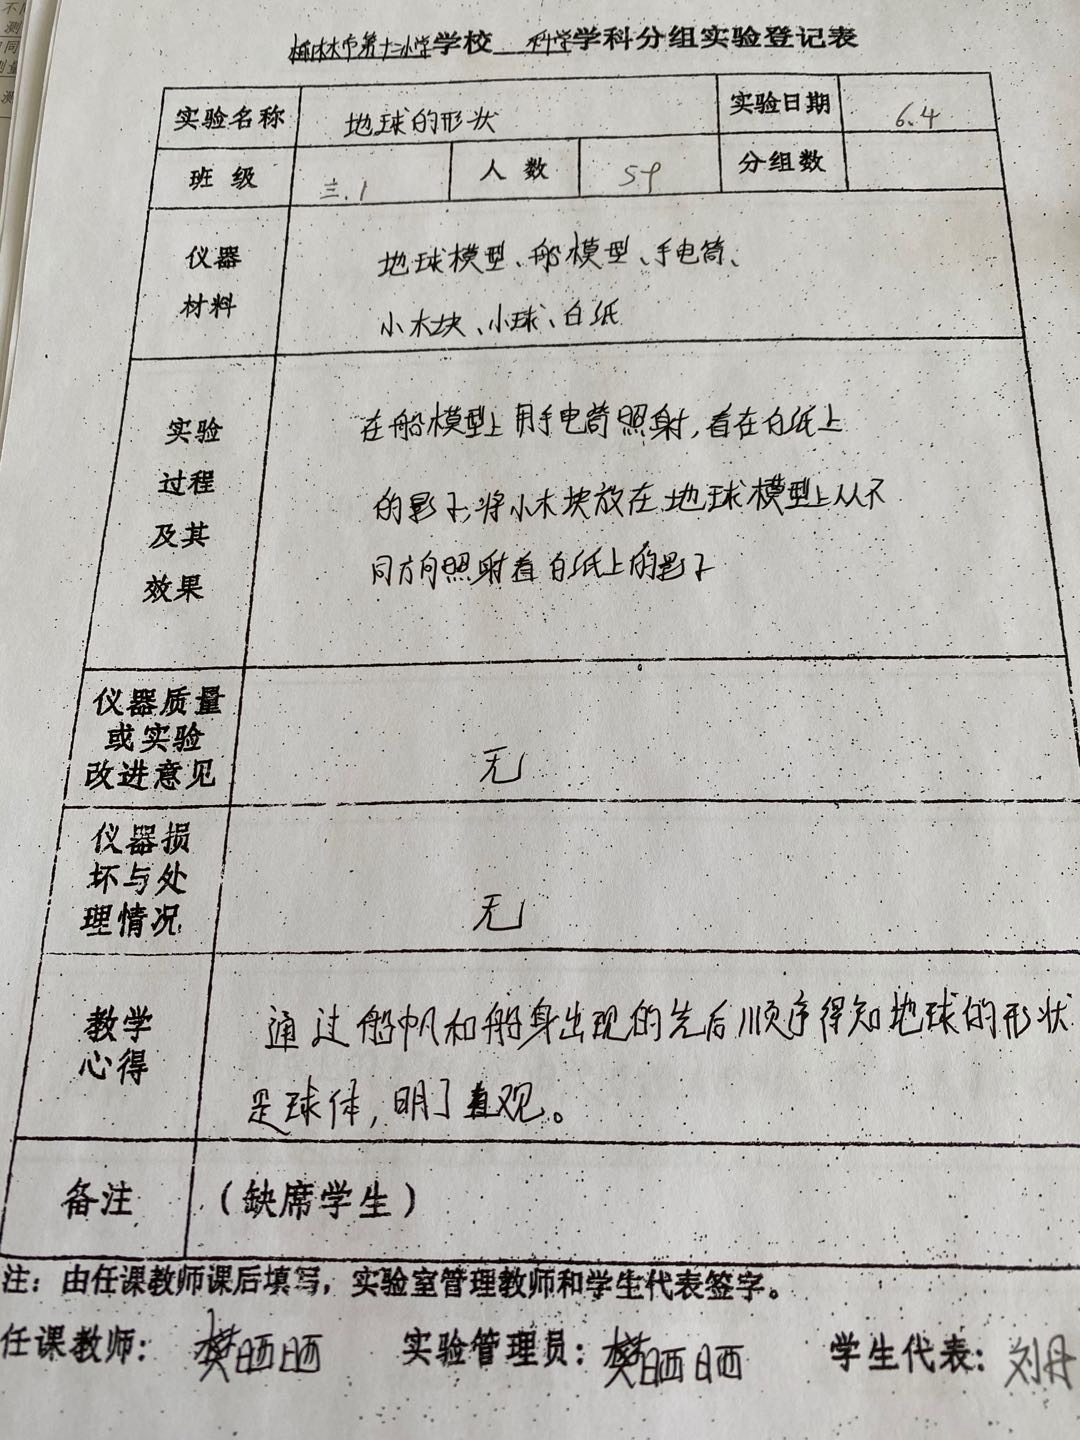 榆林市第十二小学学校 科学学科分组实验登记表
实验名称 地球的形状 实验日期 6.4
班级 三.1 人数 59 分组数
仪器材料
地球模型、船模型、手电筒、
小木块、小球、白纸
实验过程及其效果
在船模型上用手电筒照射,看在白纸上
的影子,将小木块放在地球模型上从不
同方向照射看白纸上的影子
仪器质量或实验改进意见 无
仪器损坏与处理情况 无
教学心得
通过船帆和船身出现的先后顺序得知地球的形状
是球体,明了直观。
备注 (缺席学生)
注:由任课教师课后填写,实验室管理教师和学生代表签字。
任课教师: 樊晒晒 实验管理员: 樊晒晒 学生代表: 刘丹